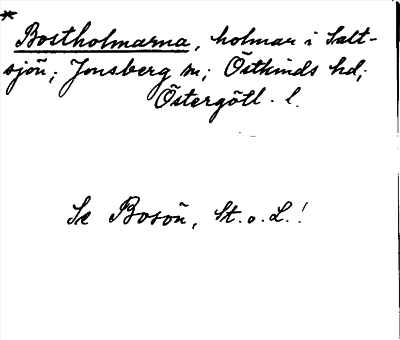 *
Bostholmarna, holmar i Salt-
sjön; Jonsberg sn; Östkinds hd;
Östergötl. l.
Se Bosön, St. o. L.!